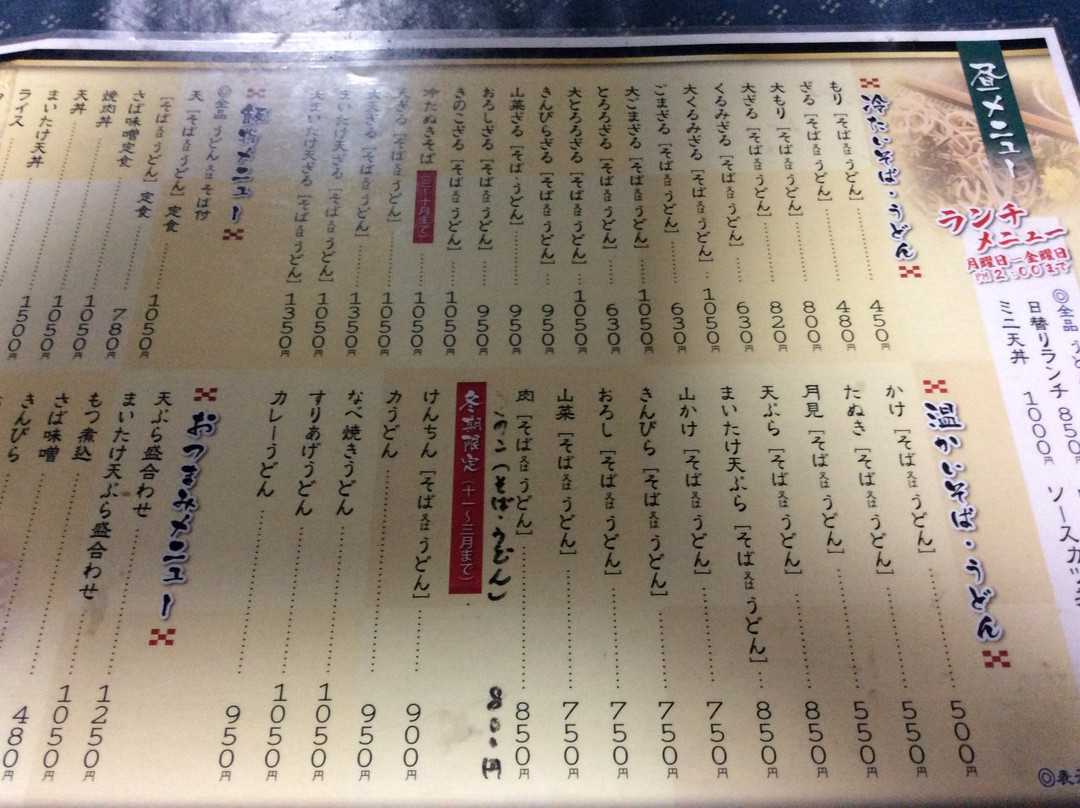 昼メニュー
ランチ
メニュー
月曜日ー金曜日
PM2:00まで
◎全品 うど
日替りランチ 850円
ミニ天丼 1000円
ソースカツ
冷たいそば・うどん
もり[そば又はうどん] 450円
ざる[そば又はうどん] 480円
大もり[そば又はうどん] 800円
大ざる[そば又はうどん] 820円
くるみざる[そば又はうどん] 630円
大くるみざる[そば又はうどん] 1050円
ごまざる[そば又はうどん] 630円
大ごまざる[そば又はうどん] 1050円
とろろざる[そば又はうどん] 630円
大とろろざる[そば又はうどん] 1050円
きんぴらざる[そば又はうどん] 950円
山菜ざる[そば又はうどん] 950円
おろしざる[そば又はうどん] 950円
きのこざる[そば又はうどん] 1050円
冷たぬきそば(三〜十月まで) 1050円
天ざる[そば又はうどん] 1050円
大天ざる[そば又はうどん] 1350円
まいたけ天ざる[そば又はうどん] 1050円
大まいたけ天ざる[そば又はうどん] 1350円
飯物メニュー
◎全品 うどん又はそば付
天[そば又はうどん]定食
[そば又はうどん]定食 1050円
さば味噌定食 780円
焼肉丼 1050円
天丼 1050円
まいたけ天丼 1050円
ライス
温かいそば・うどん
かけ[そば又はうどん] 500円
たぬき[そば又はうどん] 550円
月見[そば又はうどん] 550円
天ぷら[そば又はうどん] 850円
まいたけ天ぷら[そば又はうどん] 850円
山かけ[そば又はうどん] 750円
きんぴら[そば又はうどん] 750円
おろし[そば又はうどん] 750円
山菜[そば又はうどん] 750円
肉[そば又はうどん] 850円
きのこ(そば・うどん) 800円
冬期限定(十一〜三月まで)
けんちん[そば又はうどん] 900円
力うどん 950円
なべ焼きうどん 1050円
すりあげうどん 1050円
カレーうどん 950円
おつまみメニュー
天ぷら盛合わせ 1250円
まいたけ天ぷら盛合わせ 1050円
もつ煮込 480円
さば味噌
きんぴら
◎表示